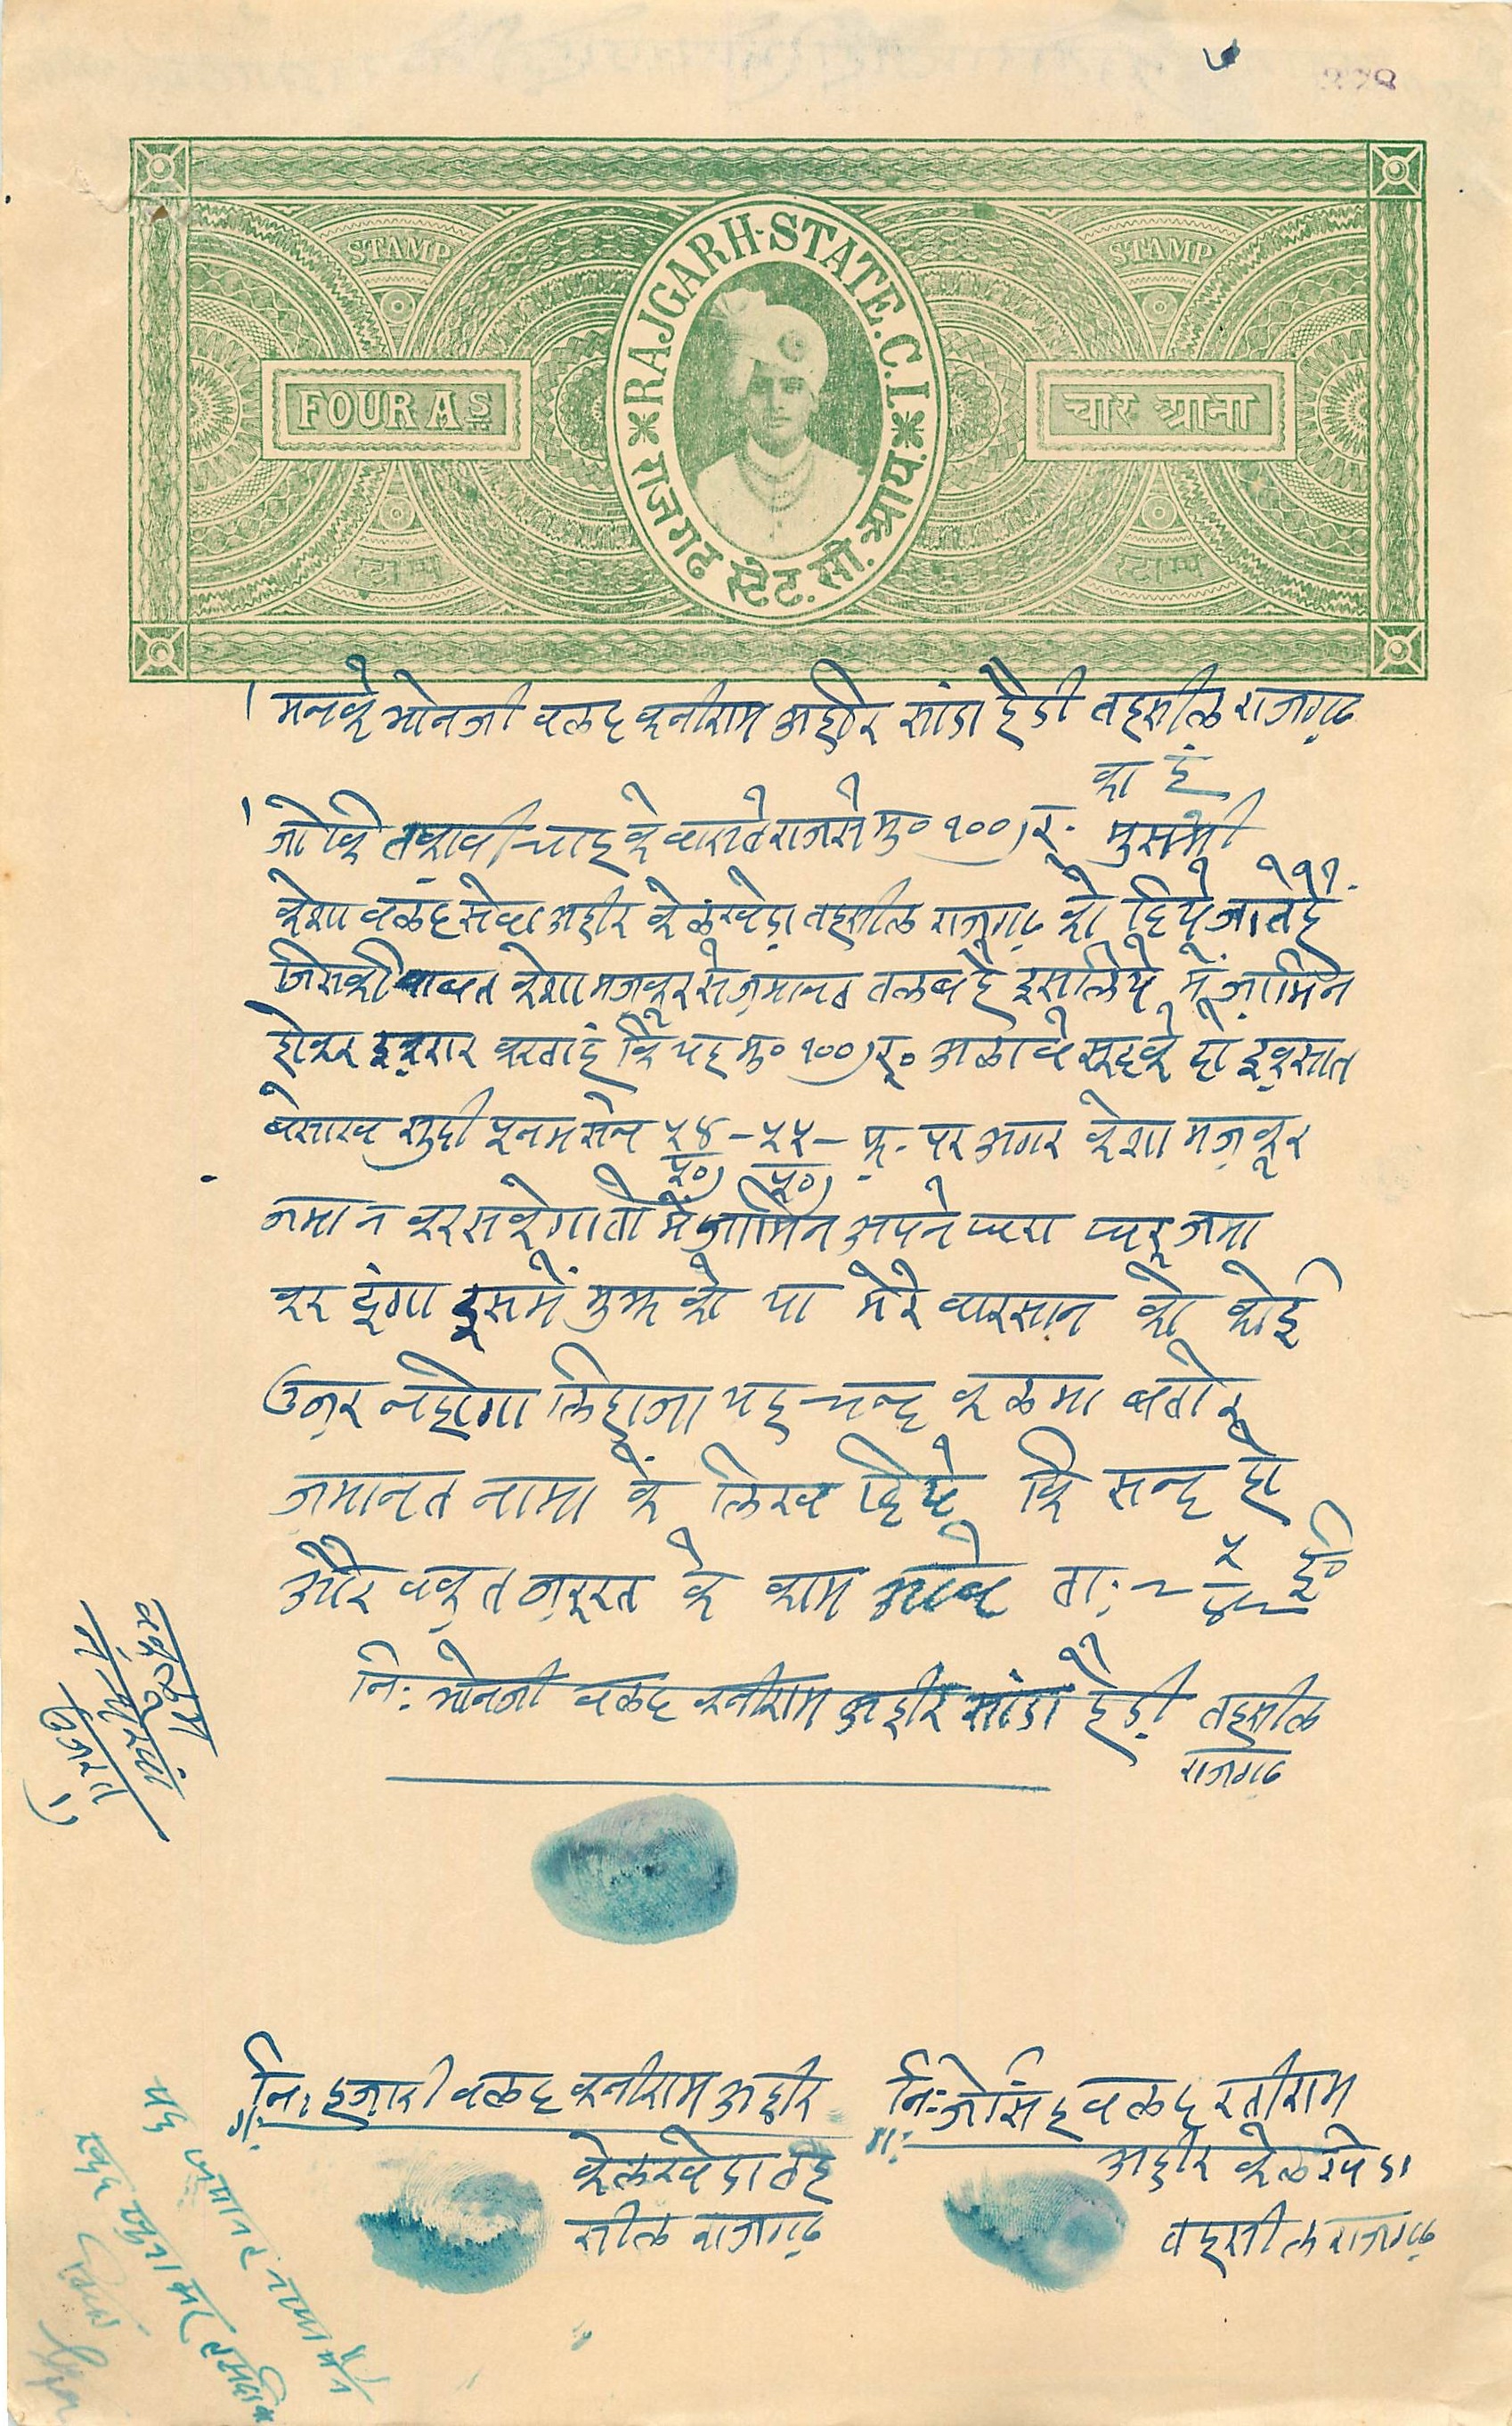 STAMP STAMP
RAJGARH-STATE.C.I.
FOUR As चार आना
राजगढ स्टेट.सी.आय.
स्टाम्प स्टाम्प
मनके मोनजी वलद कनीराम अहीर सांडा हैडी तहसील राजगढ़
का हूं
जोकि तकावी चाह के वास्ते राज से मु० १००) रु. मुसम्मी
केशा वलद सेवा अहीर केलखेड़ा तहसील राजगढ़ को दिये जाते हैं
जिसकी बाबत केशा मजकूर से ज़मानत तलब है इसलिये में ज़ामिन
होकर इक़रार करता हूं कि यह मु० १००) रु० अलावे सूद के दो इक़सात
बेसाख सुदी पूनम सन ५४ - ५५ - फ़. पर अगर केशा मज़कूर
५०) ५०)
जमा न कर सकेगा तो में ज़ामिन अपने घरा घरू जमा
कर दूंगा इसमें मुझ को या मेरे वारसान को कोई
उज़र न होगा लिहाजा यह चन्द कलमा बतोर
ज़मानत नामा के लिख दिये कि सन्द हो
और वक़्त ज़रूरत के काम आवे ता:
नि: मोनजी वलद कनीराम अहीर सांडा हैड़ी तहसील
राजगढ़
नि: हज़ारी वलद कनीराम अहीर
केलखेडा तह
सील राजगढ़
नि: जेसिंह वलद रतीराम
अहीर केलखेडा
तहसील राजगढ़